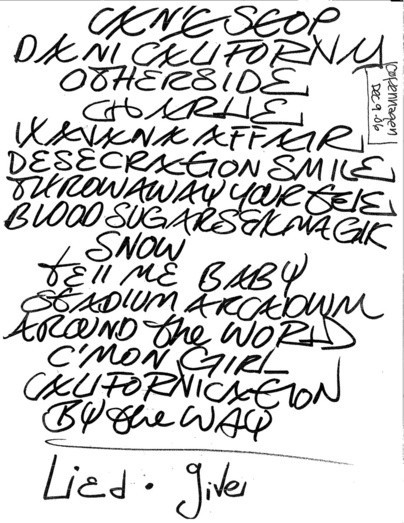 CAN'T STOP
DANI CALIFORNIA
OTHERSIDE
CHARLIE
HAVANA AFFAIR
DESECRATION SMILE
THROW AWAY YOUR TELE
BLOOD SUGAR SEX MAGIK
SNOW
TELL ME BABY
STADIUM ARCADIUM
AROUND the WORLD
C'MON GIRL
CALIFORNICATION
BY the WAY
Lied • giver
Copenhagen
DEC 9.06